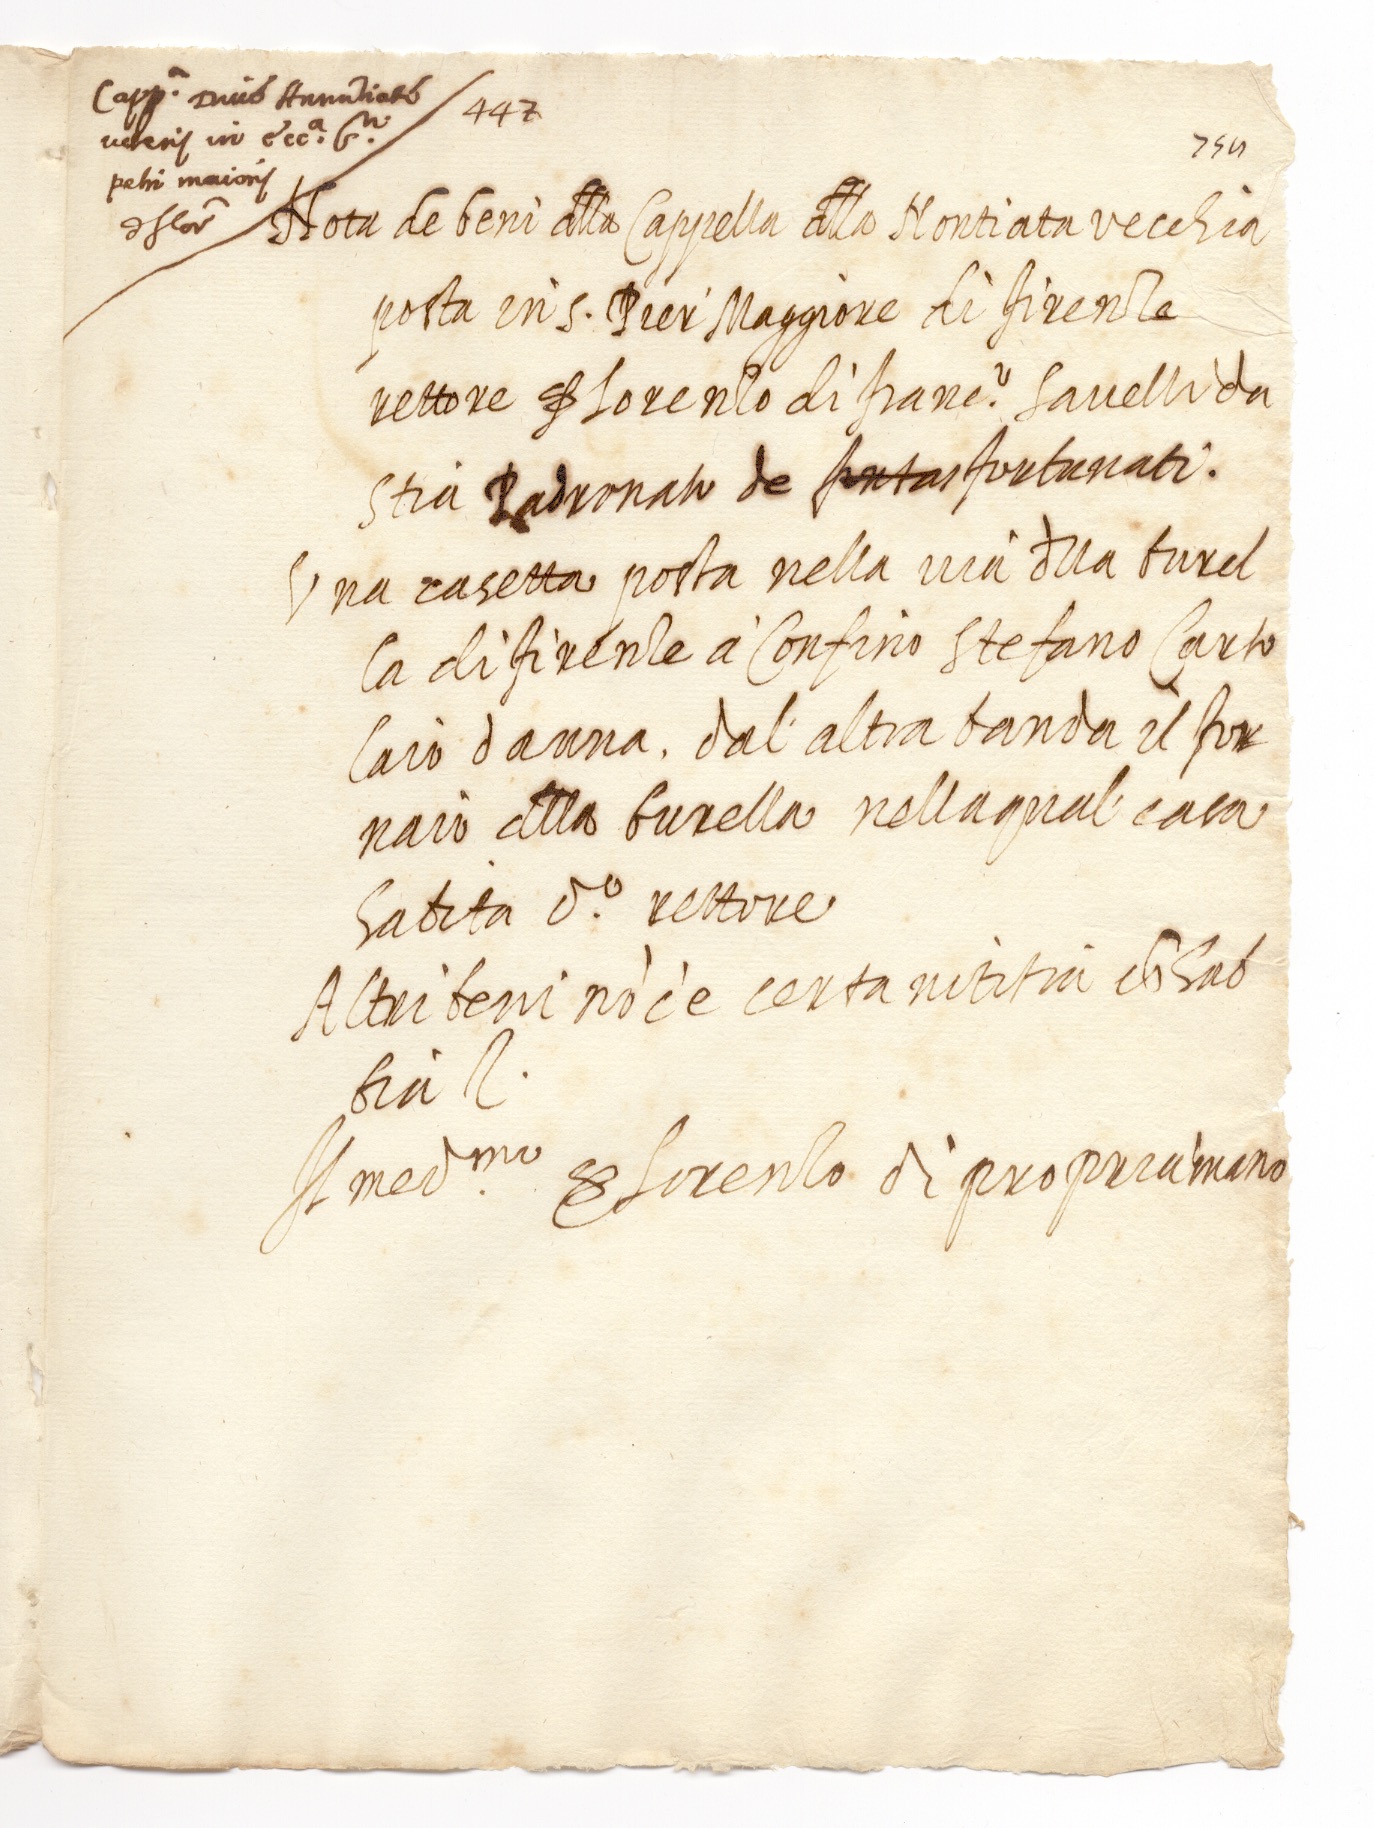 Capp.a Divæ Annuntiatæ
veteris in ecc.a S.ti
petri maioris
de Flor.
447
754
Nota de beni della Cappella della Nontiata vecchia
posta in S. Pier Maggiore di firenze
rettore ser Lorenzo di Franc.o Savelli da
Stia Padronato de fortunati.
Una casetta posta nella via della burel
la di firenze à Confino Stefano Carto
laio d anna. dal' altra banda il for
naio della burella nella qual' casa
habita d.o rettore
Altri beni nō c'è certa nititia ch s'hab
bia
Il med.mo ser Lorenzo di propria mano